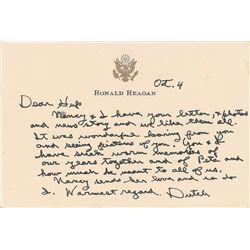 RONALD REAGAN
Oct. 4
Dear
Nancy & I have your letter, & photos
and news story and we like them all.
It was wonderful hearing from you
and seeing pictures of you. You & I
have such warm memories of
our years together and of Pete and
how much he meant to all of us.
Nancy sends her love and so do
I. Warmest regard, Dutch